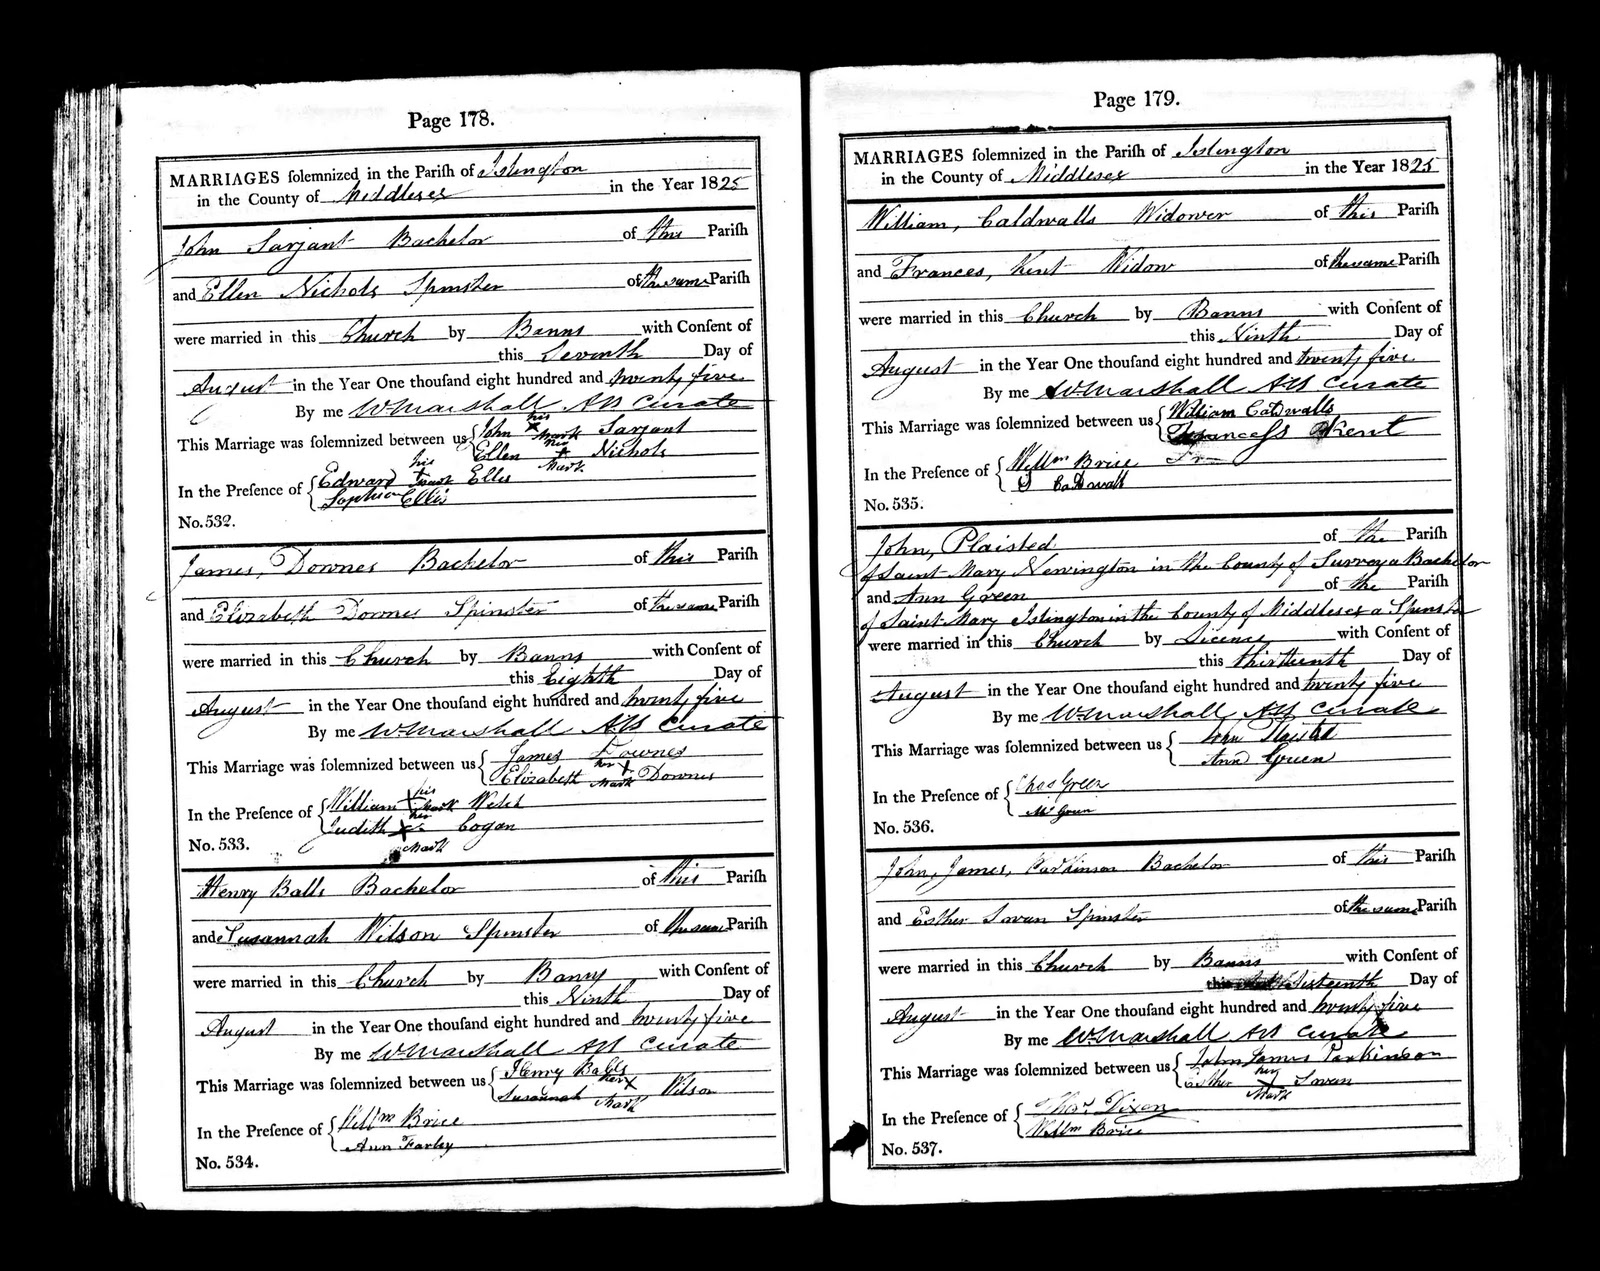 Page 178.
MARRIAGES solemnized in the Parish of Islington
in the County of Middlesex in the Year 1825
John Sarjant Bachelor of this Parish
and Ellen Nichols Spinster of the same Parish
were married in this Church by Banns with Consent of
this Seventh Day of
August in the Year One thousand eight hundred and twenty five
By me W Marshall AB Curate
This Marriage was solemnized between us { John his X Mark Sarjant
Ellen her + Mark Nichols
In the Presence of { Edward his + Mark Ellis
Sophia Ellis
No. 532.
James, Downes Bachelor of this Parish
and Elizabeth Downes Spinster of the same Parish
were married in this Church by Banns with Consent of
this Eighth Day of
August in the Year One thousand eight hundred and twenty five
By me W Marshall AB Curate
This Marriage was solemnized between us { James Downes
Elizabeth her X Mark Downes
In the Presence of { William his X Mark Welch
Judith her X Mark Cogan
No. 533.
Henry Balls Bachelor of this Parish
and Susannah Wilson Spinster of the same Parish
were married in this Church by Banns with Consent of
this Ninth Day of
August in the Year One thousand eight hundred and twenty five
By me W Marshall AB Curate
This Marriage was solemnized between us { Henry Balls
Susannah her X Mark Wilson
In the Presence of { Willm Brice
Ann Farley
No. 534.
Page 179.
MARRIAGES solemnized in the Parish of Islington
in the County of Middlesex in the Year 1825
William, Caldwalls Widower of this Parish
and Frances, Kent Widow of the same Parish
were married in this Church by Banns with Consent of
this Ninth Day of
August in the Year One thousand eight hundred and twenty five
By me W Marshall AB Curate
This Marriage was solemnized between us { William Caldwalls
Francess Kent
In the Presence of { Willm Brice Fr
Caldwall
No. 535.
John, Plaisted of the Parish
of Saint Mary Newington in the County of Surrey a Bachelor
and Ann Green of the Parish
of Saint Mary Islington in the County of Middlesex a Spinster
were married in this Church by Licence with Consent of
this thirteenth Day of
August in the Year One thousand eight hundred and twenty five
By me W Marshall AB Curate
This Marriage was solemnized between us { John Plaisted
Ann Green
In the Presence of { Chas Green
Green
No. 536.
John, James, Parkinson Bachelor of this Parish
and Esther Swan Spinster of the same Parish
were married in this Church by Banns with Consent of
this Sixteenth Day of
August in the Year One thousand eight hundred and twenty five
By me W Marshall AB Curate
This Marriage was solemnized between us { John James Parkinson
Esther her X Mark Swan
In the Presence of { Thos Dixon
Willm Brice
No. 537.